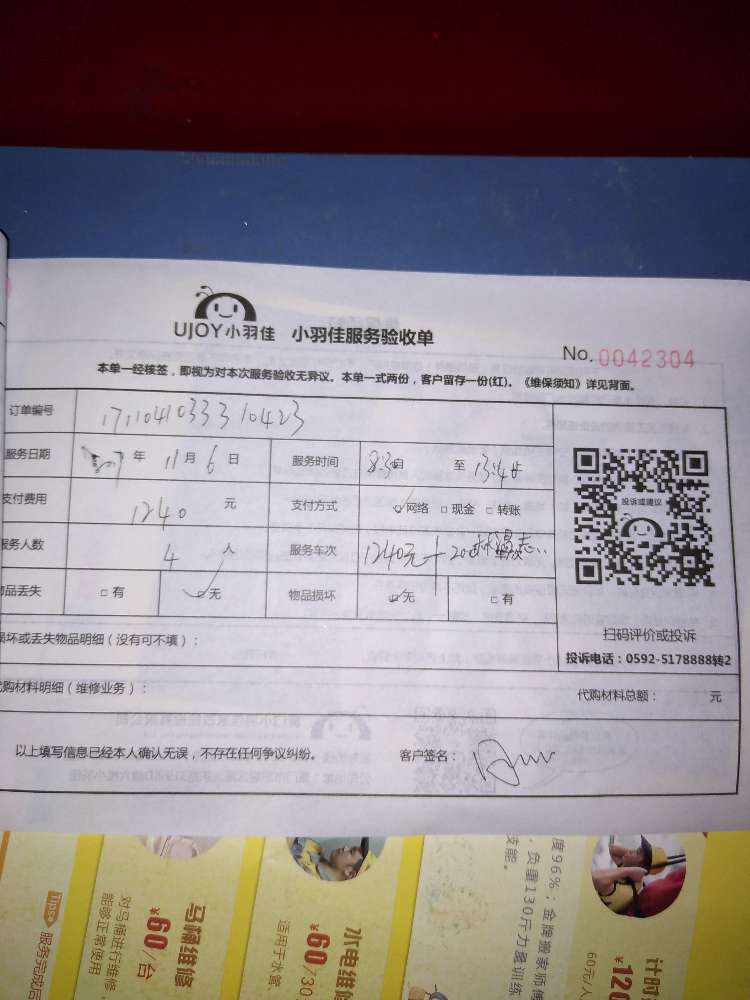 UJOY小羽佳 小羽佳服务验收单
No. 0042304
本单一经核签，即视为对本次服务验收无异议。本单一式两份，客户留存一份(红)。《维保须知》详见背面。
订单编号 17110410333310423
服务日期 年 11月 6 日 服务时间 8:30 至 13:40
支付费用 1240 元 支付方式 网络 现金 转账
服务人数 4 人 服务车次 1240元+20
投诉或建议
物品丢失 有 无 物品损坏 无 有
扫码评价或投诉
损坏或丢失物品明细（没有可不填）：
投诉电话：0592-5178888转2
代购材料明细（维修业务）： 代购材料总额： 元
以上填写信息已经本人确认无误，不存在任何争议纠纷。 客户签名：
Tips:
服务完成后
马桶维修
¥60/台
对马桶进行维修，
能够正常使用
水电维修
¥60/30
适用于水管
度96%；金牌搬家师傅
，负重130斤力量训练
技能。
计时
¥120
60元/人